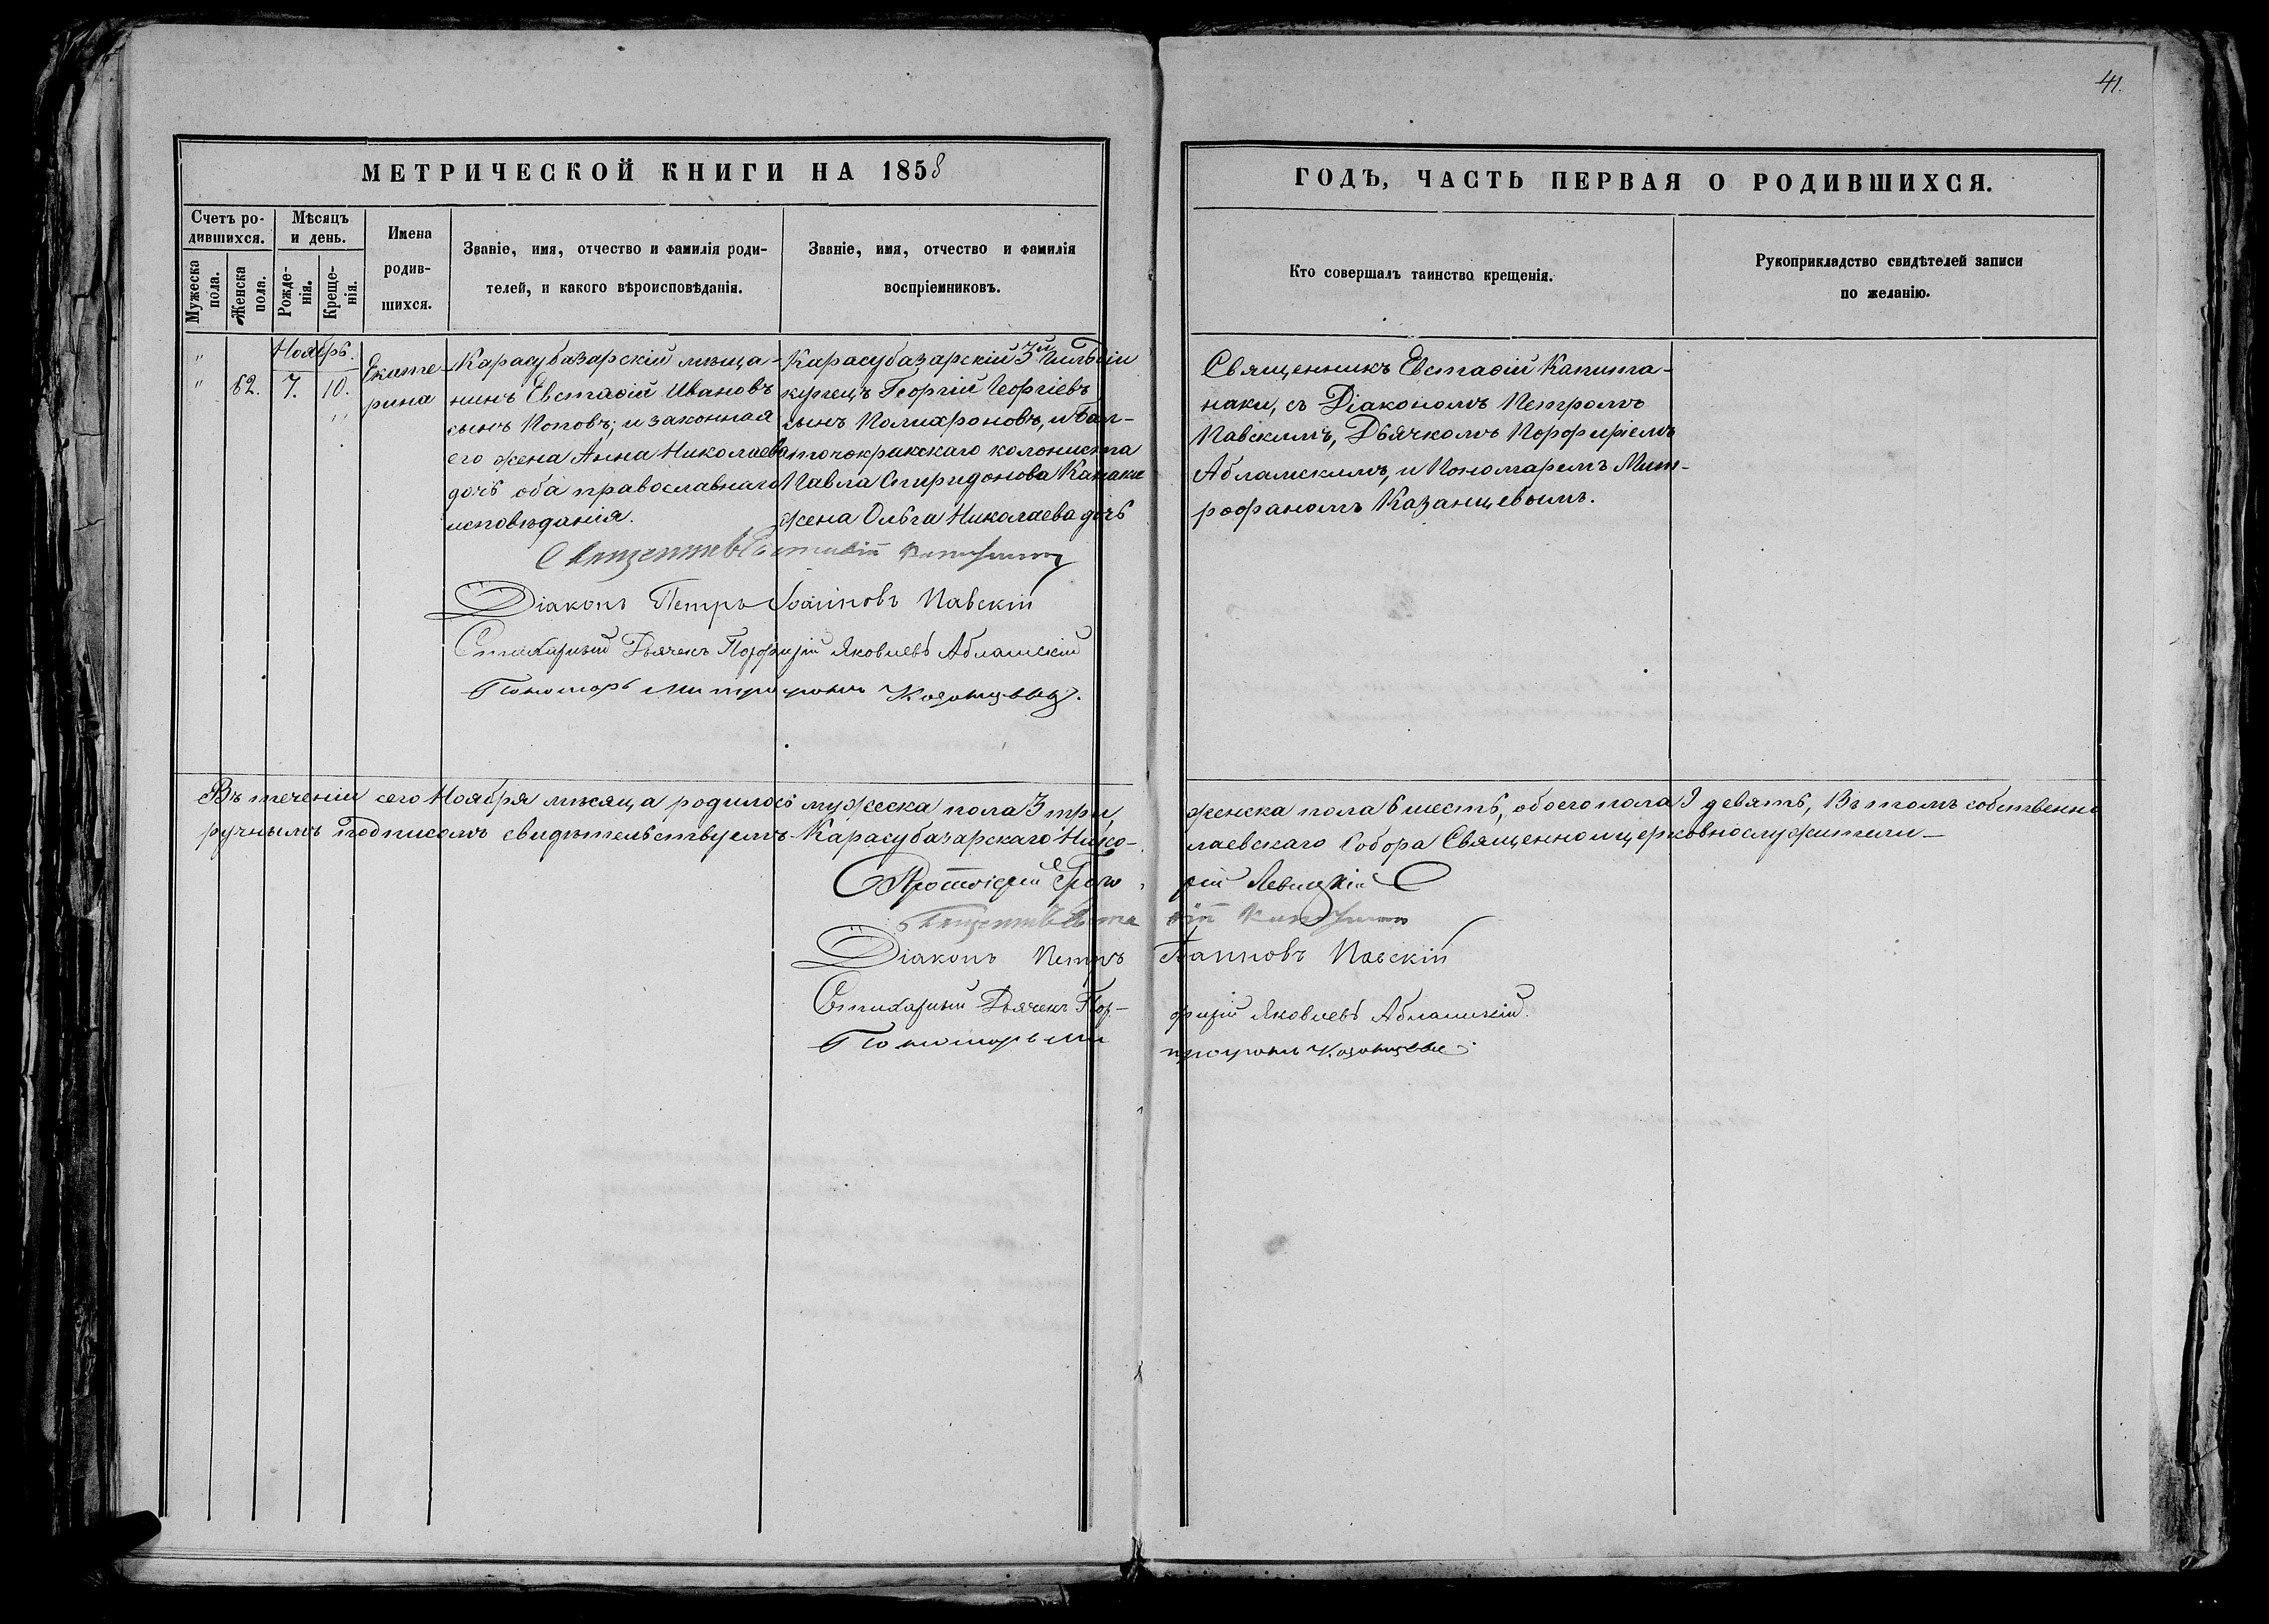 41.
МЕТРИЧЕСКОЙ КНИГИ НА 1858
ГОДЪ, ЧАСТЬ ПЕРВАЯ О РОДИВШИХСЯ.
Счетъ ро-
дившихся.
Мужеска
пола.
Женска
пола.
Мѣсяцъ
и день.
Рожде-
нія.
Креще-
нія.
Имена
родив-
шихся.
Званіе, имя, отчество и фамилія роди-
телей, и какого вѣроисповѣданія.
Званіе, имя, отчество и фамилія
воспріемниковъ.
Кто совершалъ таинство крещенія.
Рукоприкладство свидѣтелей записи
по желанію.
Ноябрь.
62. 7. 10.
Екате-
рина
Карасубазарскій мѣща-
нинъ Евстафій Ивановъ
сынъ Поповъ; и законная
его жена Анна Николаева
дочь оба православнаго
исповѣданія.
Карасубазарскій 3й гильдіи
купецъ Георгій Георгіевъ
сынъ Полихроновъ, и бал-
колониста
Павла Спиридонова
жена Ольга Николаева дочь
Священникъ Евстафій Капита-
наки, съ Діакономъ Петромъ
Павскимъ, Дьячкомъ Порфиріемъ
Абламскимъ, и Пономаремъ Мит-
рофаномъ Казанцевымъ.
Евстафій
Діаконъ Петръ Іоанновъ Павскій
Стихарный Дьячекъ Порфирій Яковлевъ Абламскій
Пономарь Митрофанъ Казанцевъ.
Въ теченіи сего Ноября мѣсяца родилось мужеска пола 3 три, женска пола 6 шесть, обоего пола 9 девять, Въ томъ собственно
ручнымъ подписомъ свидѣтельствуемъ Карасубазарскаго Нико-лаевскаго Собора Священноицерковнослужители
Протоіерей Григорій Левицкій
Діаконъ Петръ Іоанновъ Павскій
Стихарный Дьячекъ Пор-фирій Яковлевъ Абламскій.
Пономарь Митрофанъ Казанцевъ.